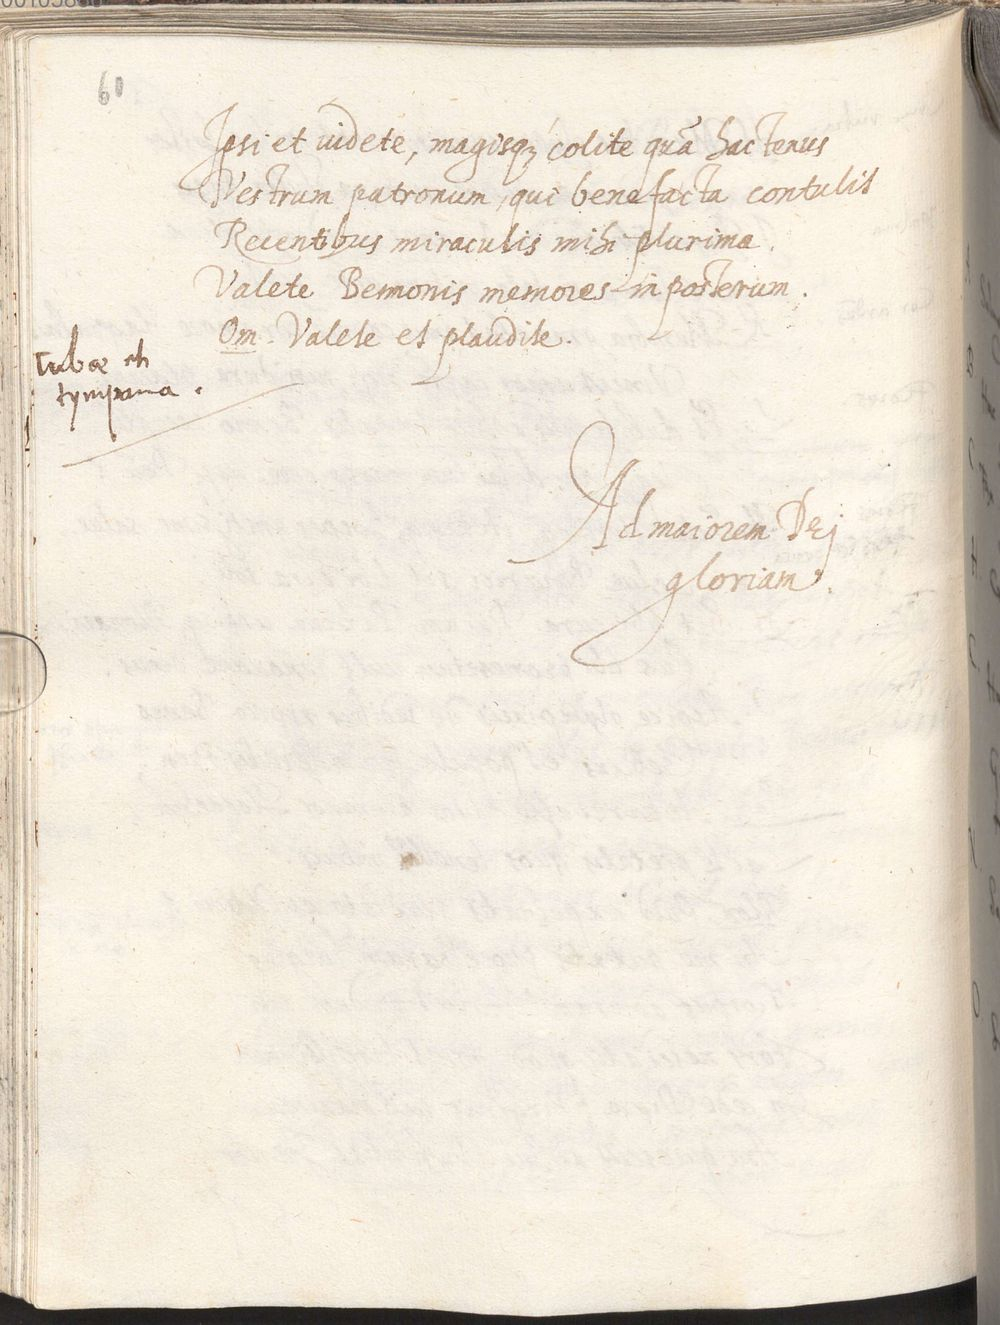 60
Ipsi et uidete, magisq; colite quã hactenus
Vestrum patronum, qui benefacta contulit
Recentibus miraculis mihi plurima.
Valete Bennonis memores in posterum.
Om. Valete et plaudite.
Tubæ et
tympana.
Ad maiorem Dei
gloriam.